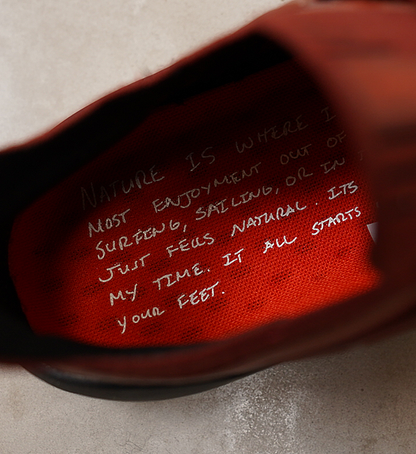 NATURE IS WHERE I
MOST ENJOYMENT OUT OF
SURFING, SAILING, OR IN
JUST FEELS NATURAL. ITS
MY TIME. IT ALL STARTS
YOUR FEET.